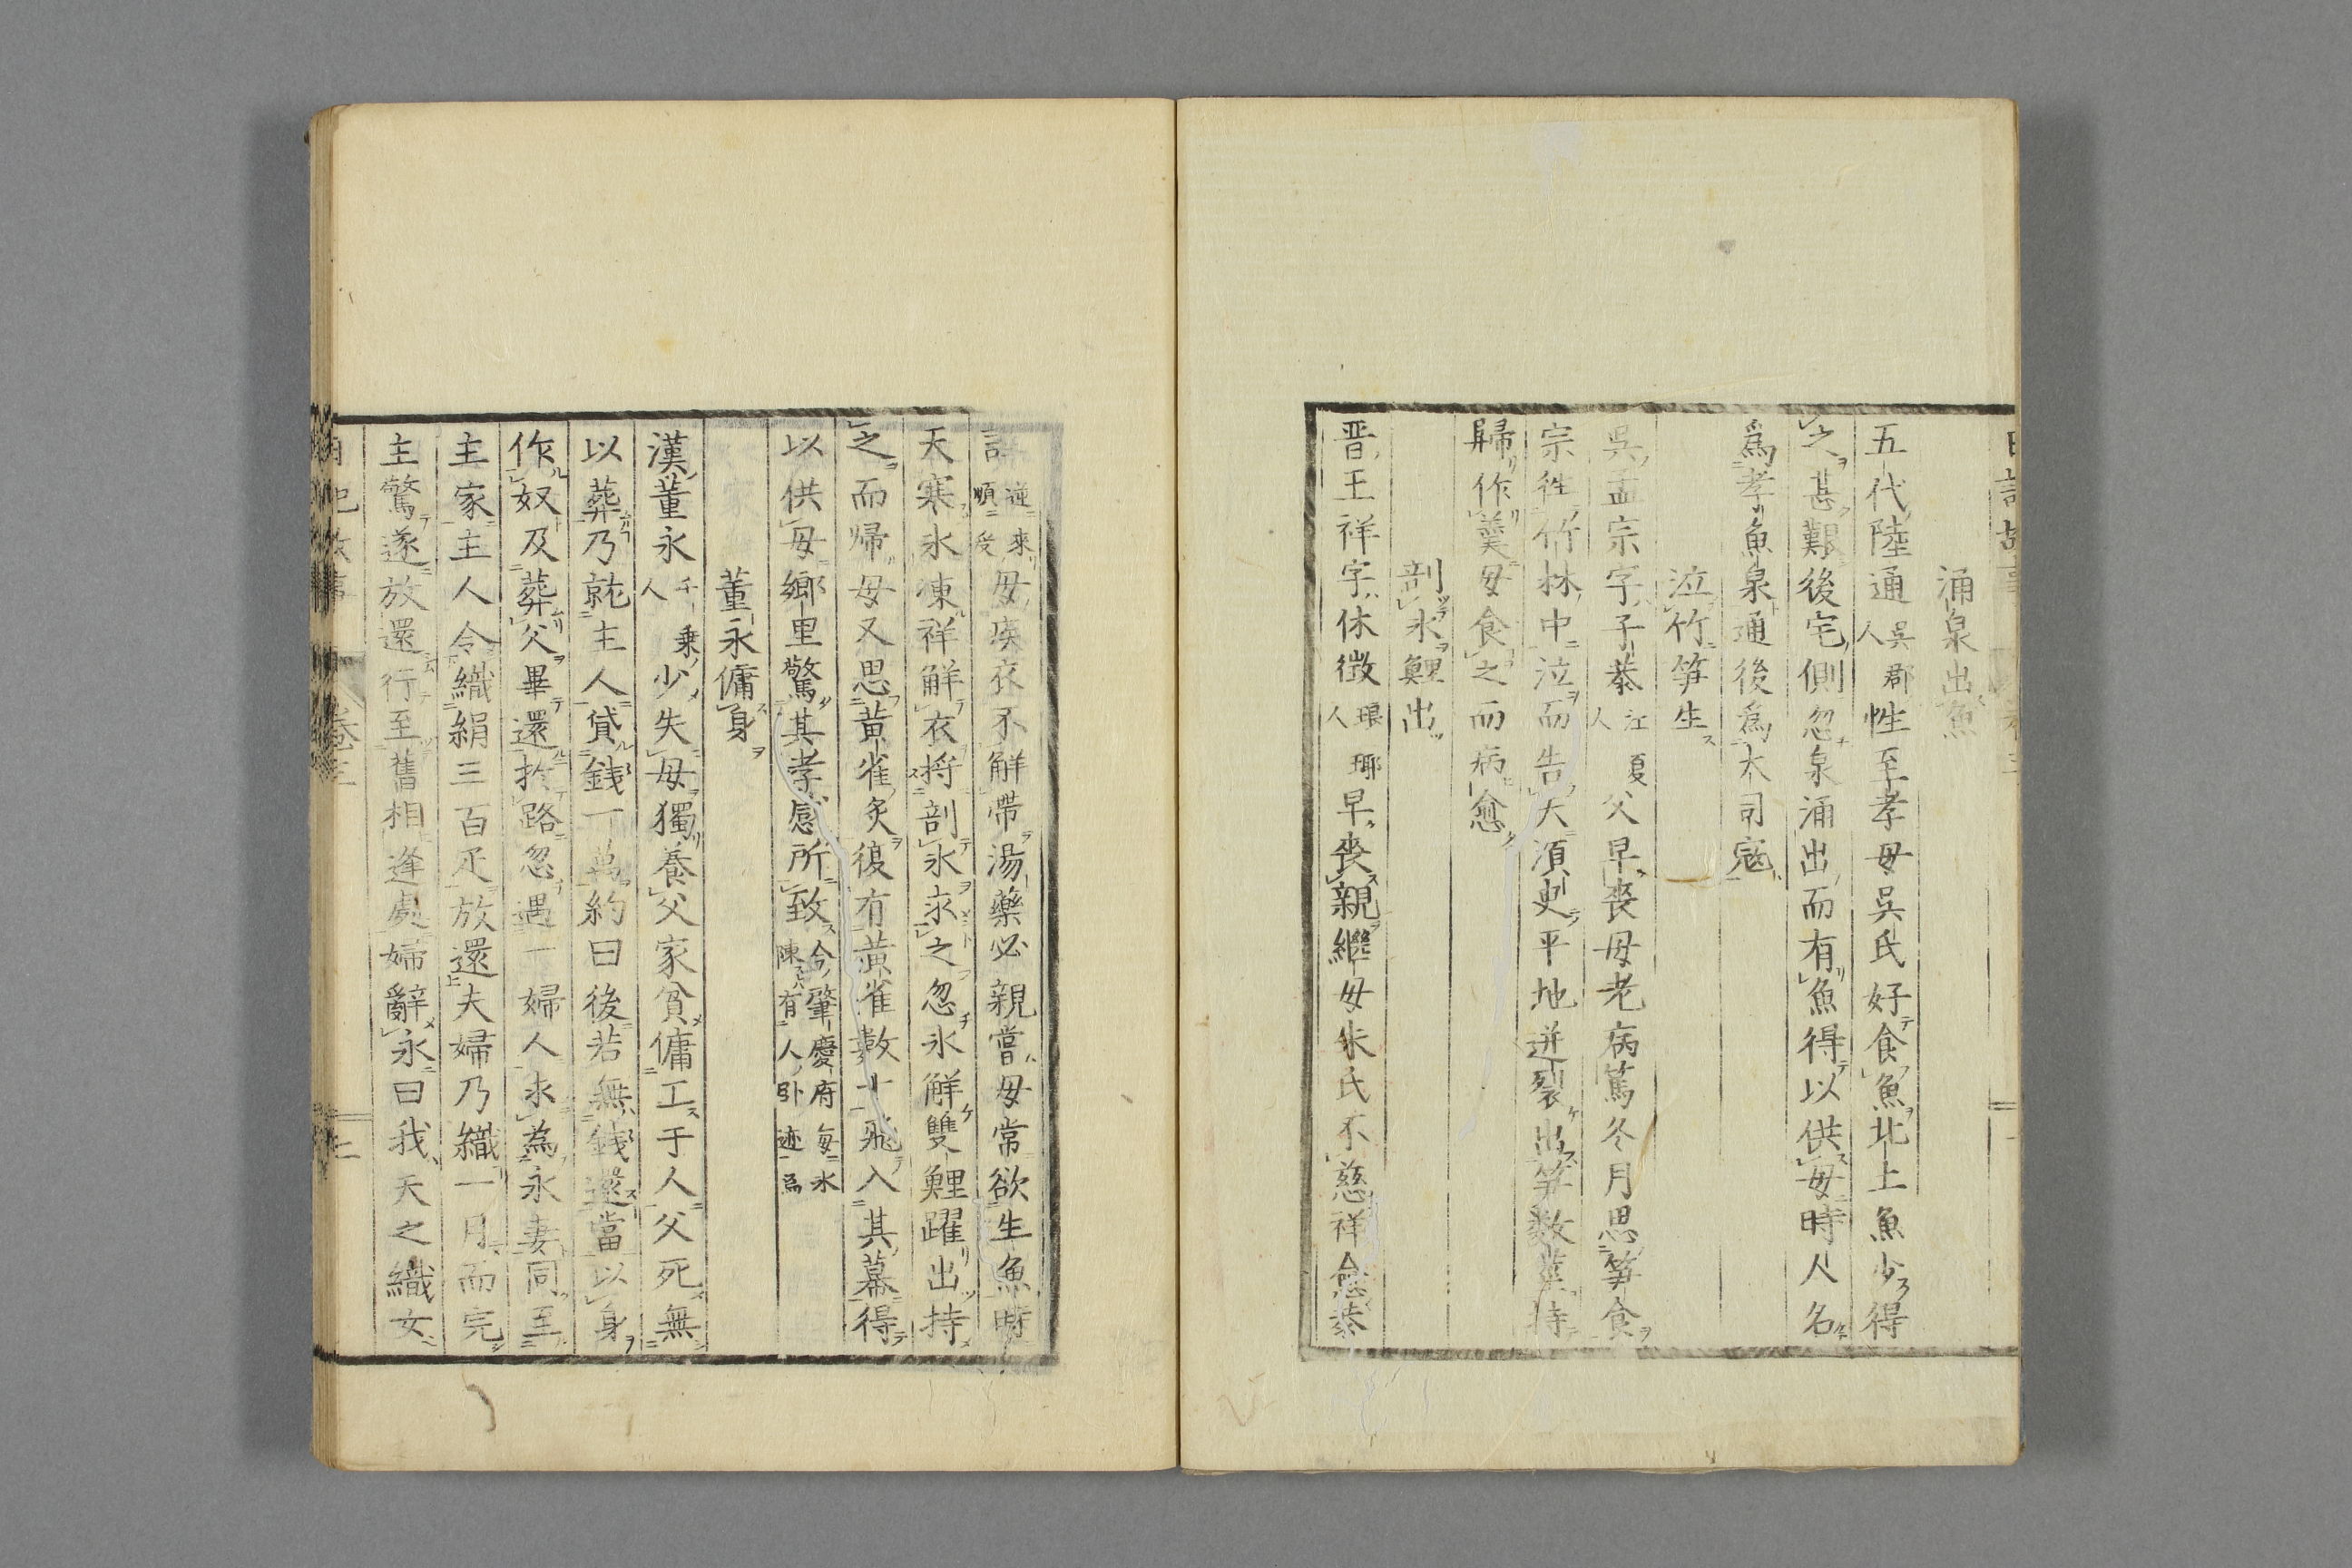 涌泉出魚
五代陸通吳郡人性至孝母吳氏好食魚北上魚少得
之甚艱後宅側忽泉涌出而有魚得以供母時人名
爲孝魚泉通後爲大司寇
泣竹笋生
吳孟宗字子恭江夏人父早喪母老病篤冬月思笋食
宗徃竹林中泣而告天須臾平地迸裂出笋数莖持
歸作羹母食之而病愈
剖氷鯉出
晋王祥字休徴琅瑘人早喪親繼母朱氏不慈祥愈恭
謹逆來順受母疾衣不觧帶湯藥必親嘗母常欲生魚時
天寒氷凍祥觧衣将剖氷求之忽氷觧雙鯉躍出持
之而歸母又思黄雀炙復有黄雀数十飛入其幕得
以供母鄉里驚其孝感所致今肇慶府每氷陳有人卧迹焉
董永傭身
漢董永千乗人少失母獨養父家貧傭工于人父死無
以葬乃就主人貸銭一萬約曰後若無銭還當以身
作奴及葬父畢還扵路忽遇一婦人求為永妻同至
主家主人令織絹三百疋放還夫婦乃織一月而完
主驚遂放還行至舊相逢處婦辭永曰我天之織女